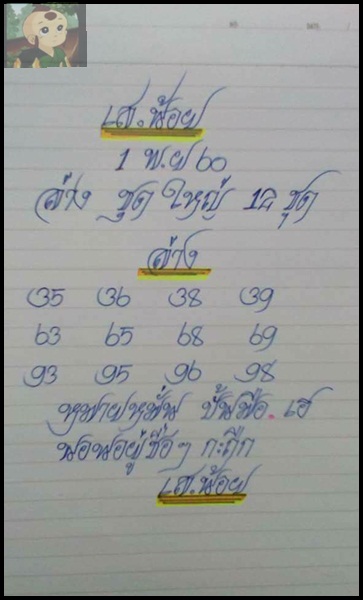 เส.น้อย
1 พ.ย 60
ล่าง ชุด ใหญ่ 12 ชุด
ล่าง
35 36 38 39
63 65 68 69
93 95 96 98
หมายหมั่น ปั้นมือ. เฮ
นอนอยู่ซื่อๆ กะถืก
เส.น้อย